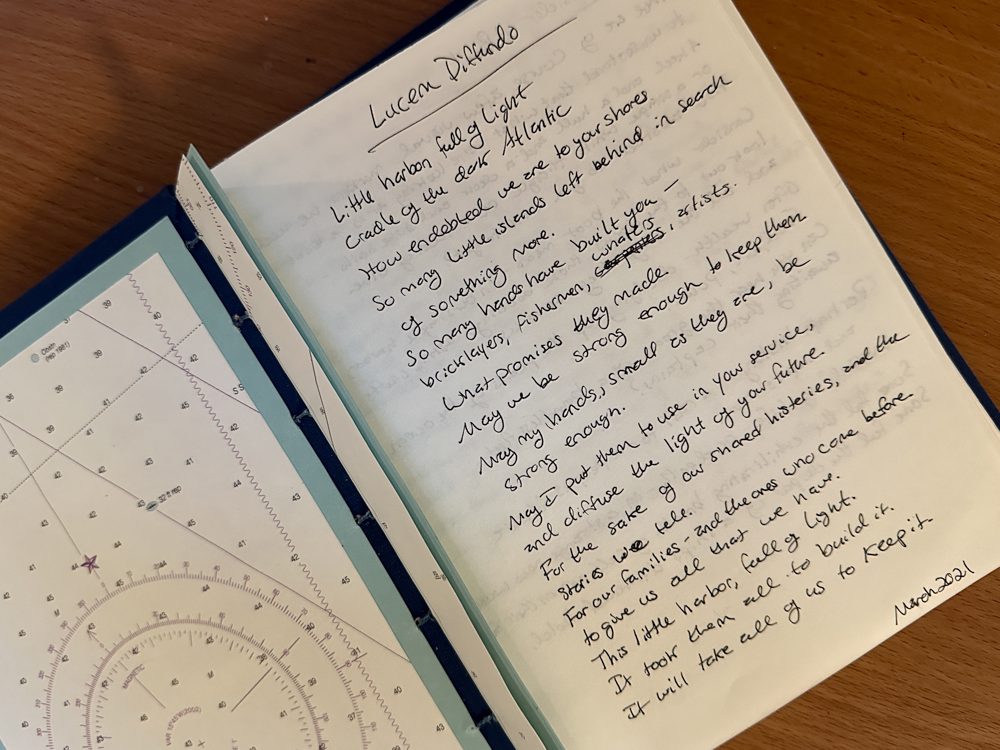 Lucem Diffundo
Little harbor full of Light
Cradle of the dark Atlantic
How endebted we are to your shores
So many little islands left behind in search
of something more.
So many hands have built you —
bricklayers, fishermen, whalers, artists.
What promises they made
May we be strong enough to keep them
May my hands, small as they are, be
strong enough.
May I put them to use in your service,
and diffuse the light of your future.
For the sake of our shared histories, and the
stories we tell.
For our families - and the ones who come before
to give us all that we have.
This little harbor, full of light.
It took them all to build it.
It will take all of us to keep it.
March 2021
Obstn
(rep 1981)
32 ft rep
MAGNETIC